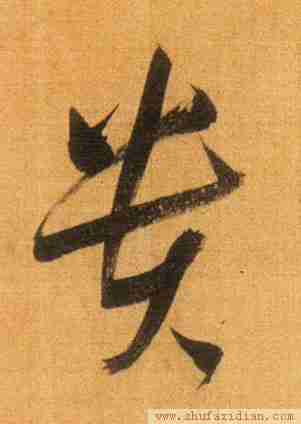 貴
www.shufazidian.com